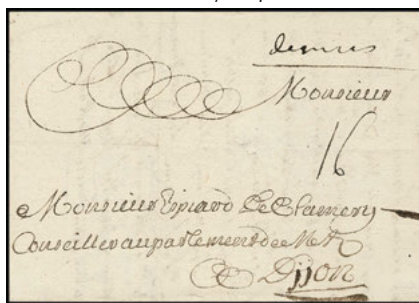 Monsieur
16
Monsieur Espiard De Clamerey
Conseiller au parlement de Metz
A Dijon